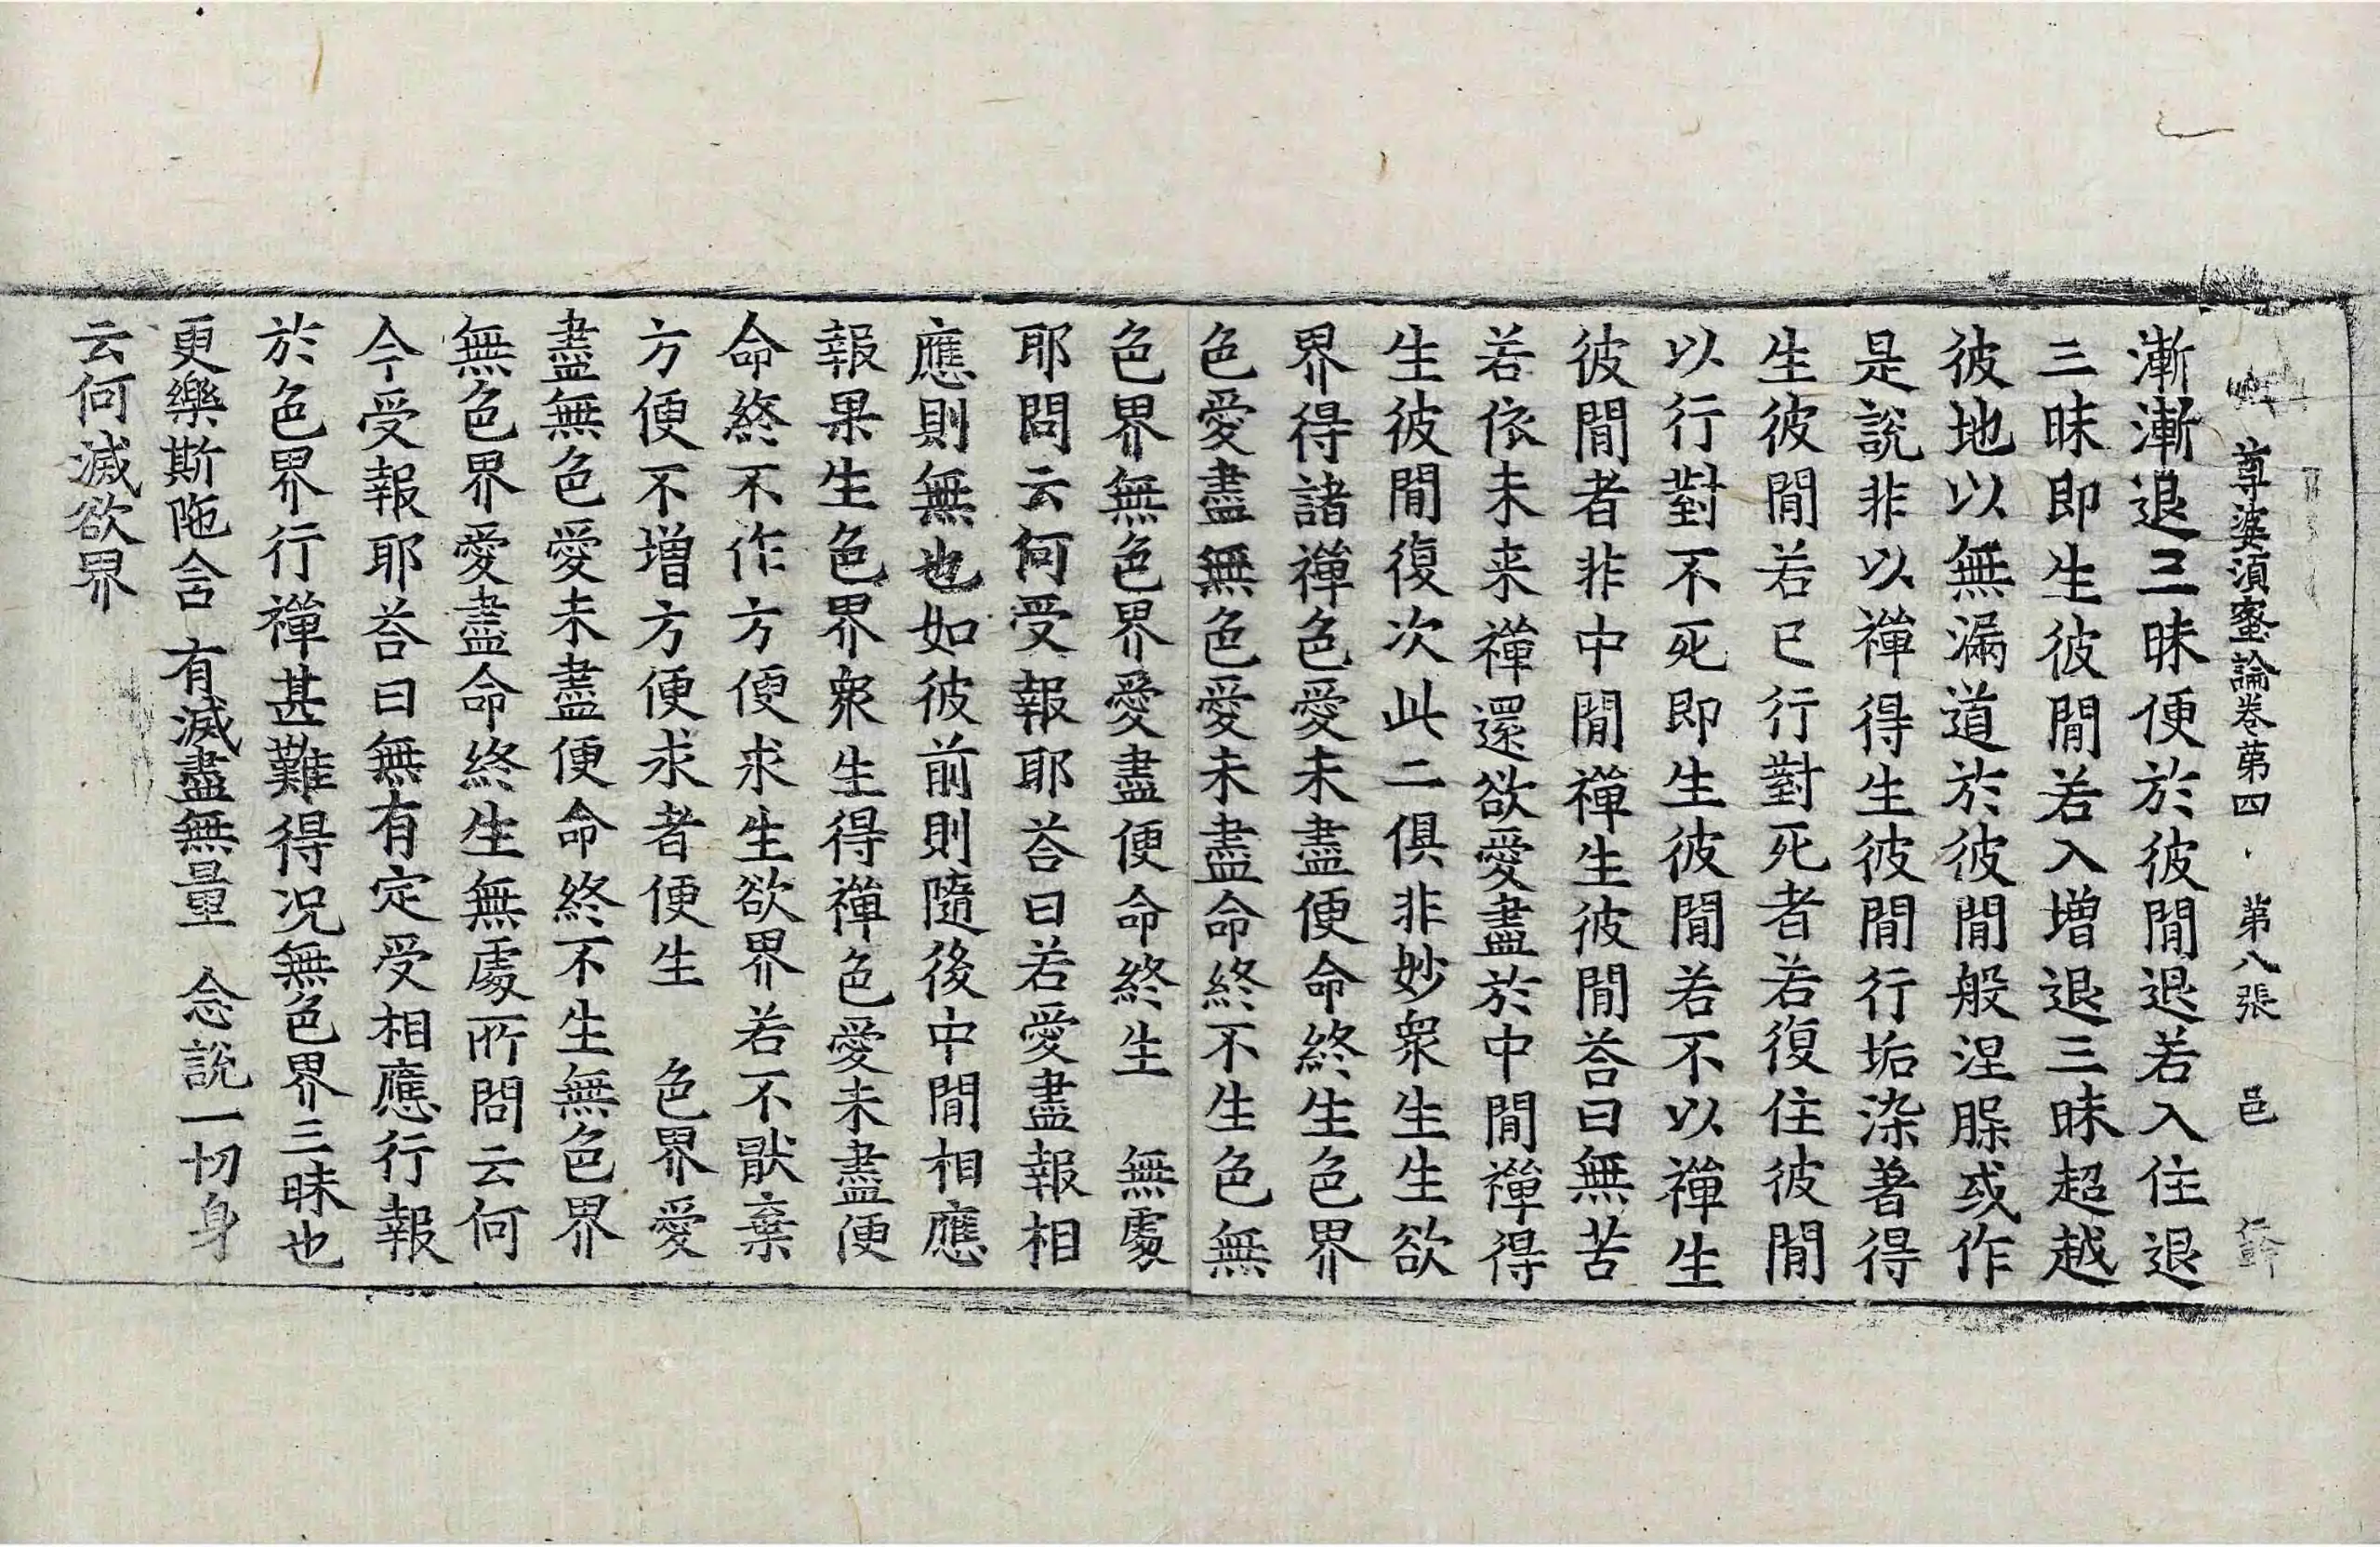 尊婆湏蜜論卷苐四 苐八張 邑
漸漸退三昧便於彼閒退若入住退
三昧即生彼閒若入增退三昧超越
彼地以無漏道於彼閒般涅脲或作
是說非以禪得生彼閒行垢染著得
生彼閒若已行對死者若復住彼閒
以行對不死即生彼閒若不以禪生
彼閒者非中閒禪生彼閒荅曰無苦
若依未来禪還欲愛盡於中閒禪得
生彼閒復次此二俱非妙衆生生欲
界得諸禪色愛未盡便命終生色界
色愛盡無色愛未盡命終不生色無
色界無色界愛盡便命終生 無處
耶問云何受報耶荅曰若愛盡報相
應則無也如彼前則隨後中閒相應
報果生色界衆生得禪色愛未盡便
命終不作方便求生欲界若不猒棄
方便不增方便求者便生 色界愛
盡無色愛未盡便命終不生無色界
無色界愛盡命終生無處所問云何
今受報耶荅曰無有定受相應行報
於色界行禪甚難得況無色界三昧也
更樂斯陁含 有滅盡無量 念說一切身
云何滅欲界